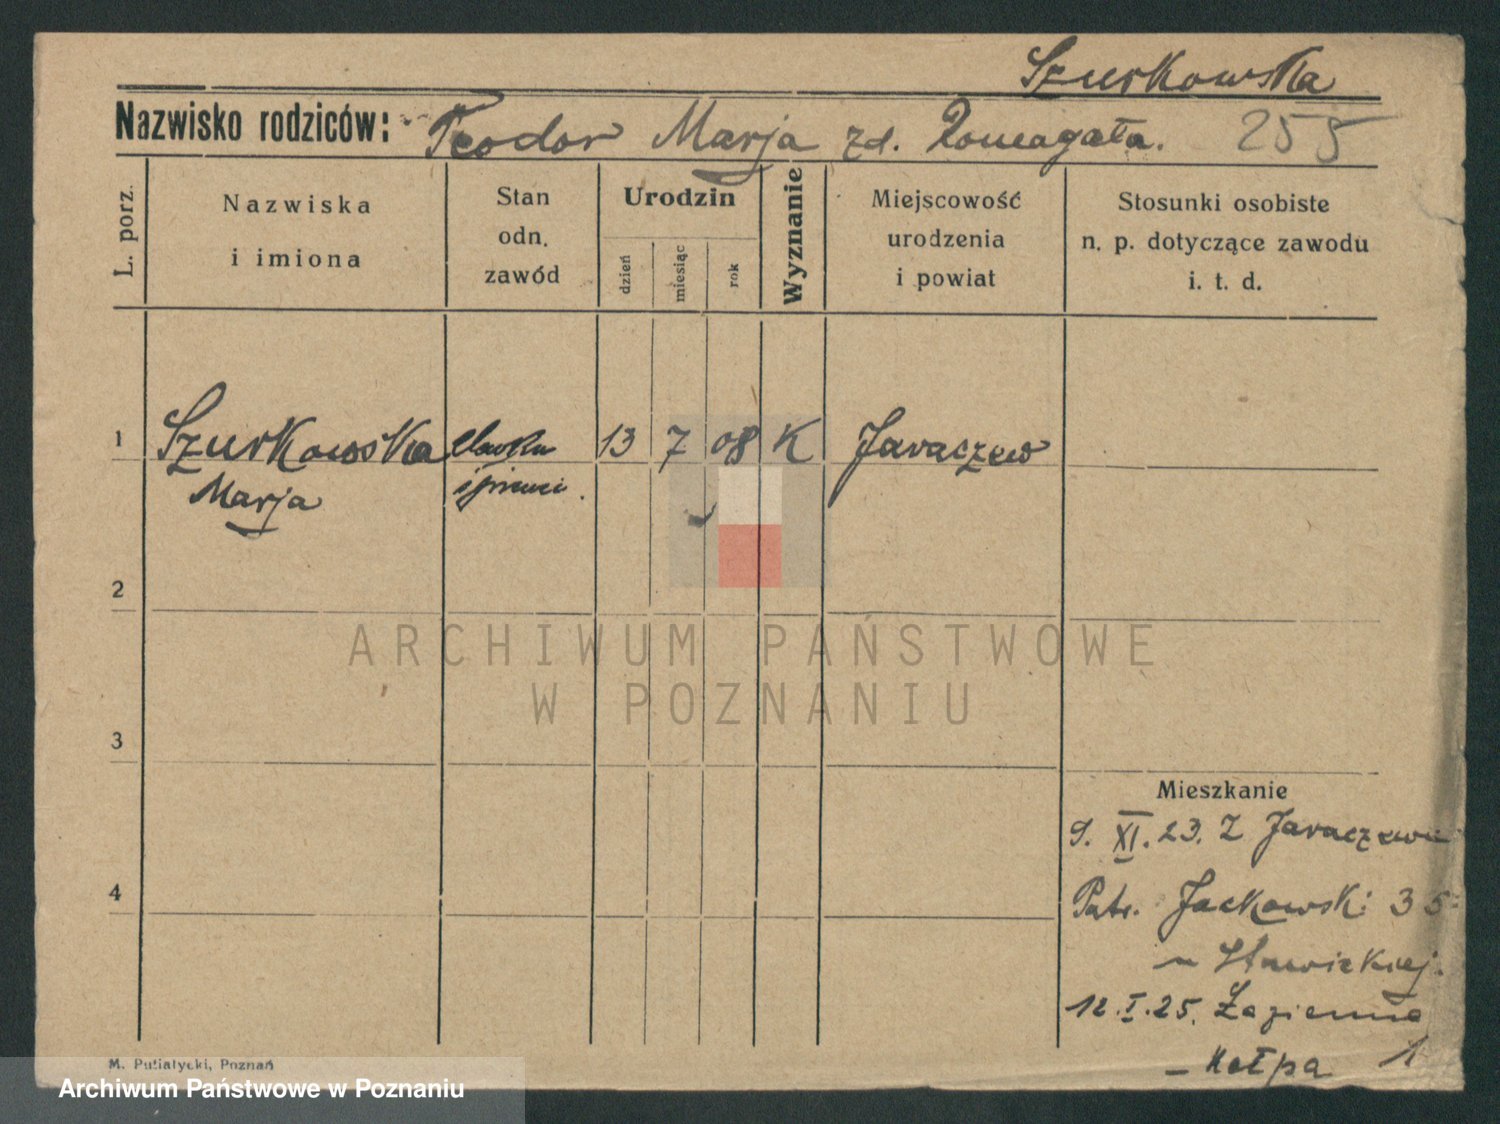 Szurkowska
Nazwisko rodziców: Teodor Marja zd. Domagała. 255
L. porz.
Nazwiska
i imiona
Stan
odn.
zawód
Urodzin
dzień
miesiąc
rok
Wyznanie
Miejscowość
urodzenia
i powiat
Stosunki osobiste
n. p. dotyczące zawodu
i. t. d.
1 Szurkowska 13 7 08 K Jaraczew
Marja
2
ARCHIWUM PAŃSTWOWE
W POZNANIU
3
Mieszkanie
9. XI. 23. Z Jaraczewa
4
Patr. Jackowski 35
u
12. I. 25. Łazienna
1
M. Putiatycki, Poznań
Archiwum Państwowe w Poznaniu